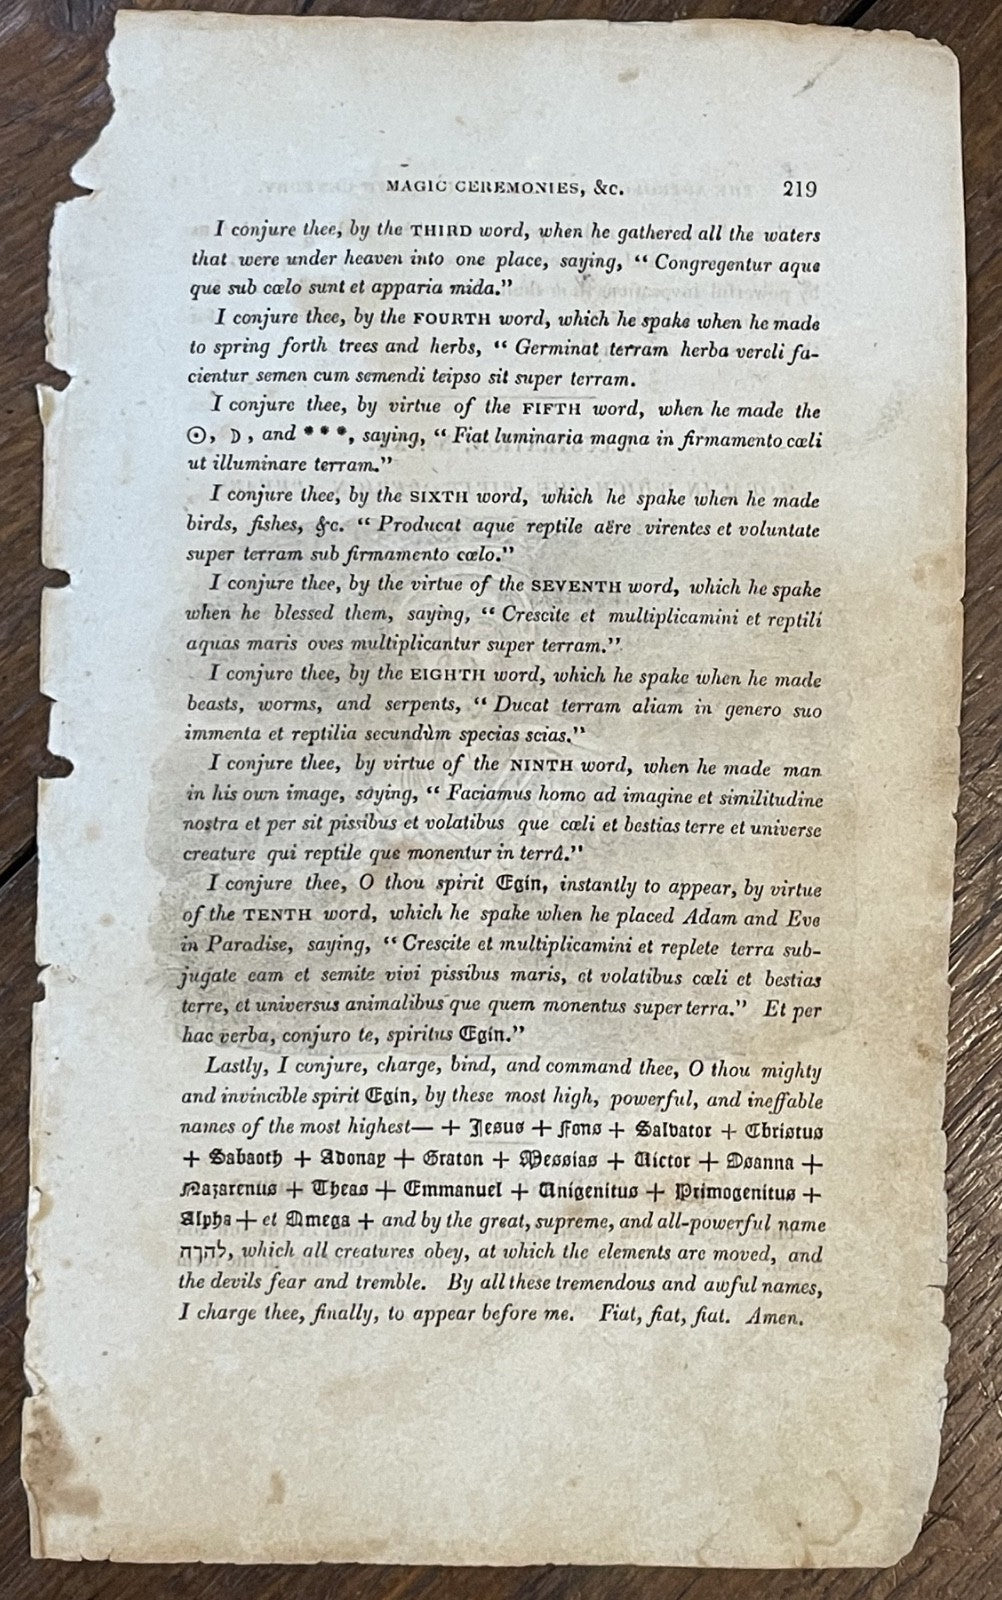 MAGIC CEREMONIES, &c. 219
I conjure thee, by the THIRD word, when he gathered all the waters
that were under heaven into one place, saying, “ Congregentur aque
que sub cœlo sunt et apparia mida.”
I conjure thee, by the FOURTH word, which he spake when he made
to spring forth trees and herbs, “ Germinat terram herba vercli fa-
cientur semen cum semendi teipso sit super terram.
I conjure thee, by virtue of the FIFTH word, when he made the
☉, ☽, and * * *, saying, “ Fiat luminaria magna in firmamento cœli
ut illuminare terram.”
I conjure thee, by the SIXTH word, which he spake when he made
birds, fishes, &c. “ Producat aque reptile aëre virentes et voluntate
super terram sub firmamento cœlo.”
I conjure thee, by the virtue of the SEVENTH word, which he spake
when he blessed them, saying, “ Crescite et multiplicamini et reptili
aquas maris oves multiplicantur super terram.”
I conjure thee, by the EIGHTH word, which he spake when he made
beasts, worms, and serpents, “ Ducat terram aliam in genero suo
immenta et reptilia secundùm specias scias.”
I conjure thee, by virtue of the NINTH word, when he made man
in his own image, saying, “ Faciamus homo ad imagine et similitudine
nostra et per sit pissibus et volatibus que cœli et bestias terre et universe
creature qui reptile que monentur in terrâ.”
I conjure thee, O thou spirit Egin, instantly to appear, by virtue
of the TENTH word, which he spake when he placed Adam and Eve
in Paradise, saying, “ Crescite et multiplicamini et replete terra sub-
jugate eam et semite vivi pissibus maris, et volatibus cœli et bestias
terre, et universus animalibus que quem monentus super terra.” Et per
hac verba, conjuro te, spiritus Egin.”
Lastly, I conjure, charge, bind, and command thee, O thou mighty
and invincible spirit Egin, by these most high, powerful, and ineffable
names of the most highest— + Jesus + Fons + Salvator + Christus
+ Sabaoth + Adonay + Graton + Messias + Uictor + Osanna +
Nazarenus + Theas + Emmanuel + Unigenitus + Primogenitus +
Alpha + et Omega + and by the great, supreme, and all-powerful name
להרה, which all creatures obey, at which the elements are moved, and
the devils fear and tremble. By all these tremendous and awful names,
I charge thee, finally, to appear before me. Fiat, fiat, fiat. Amen.